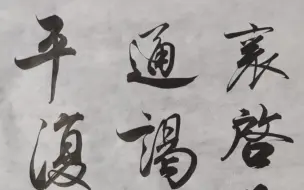 襄啓
通謁
平復